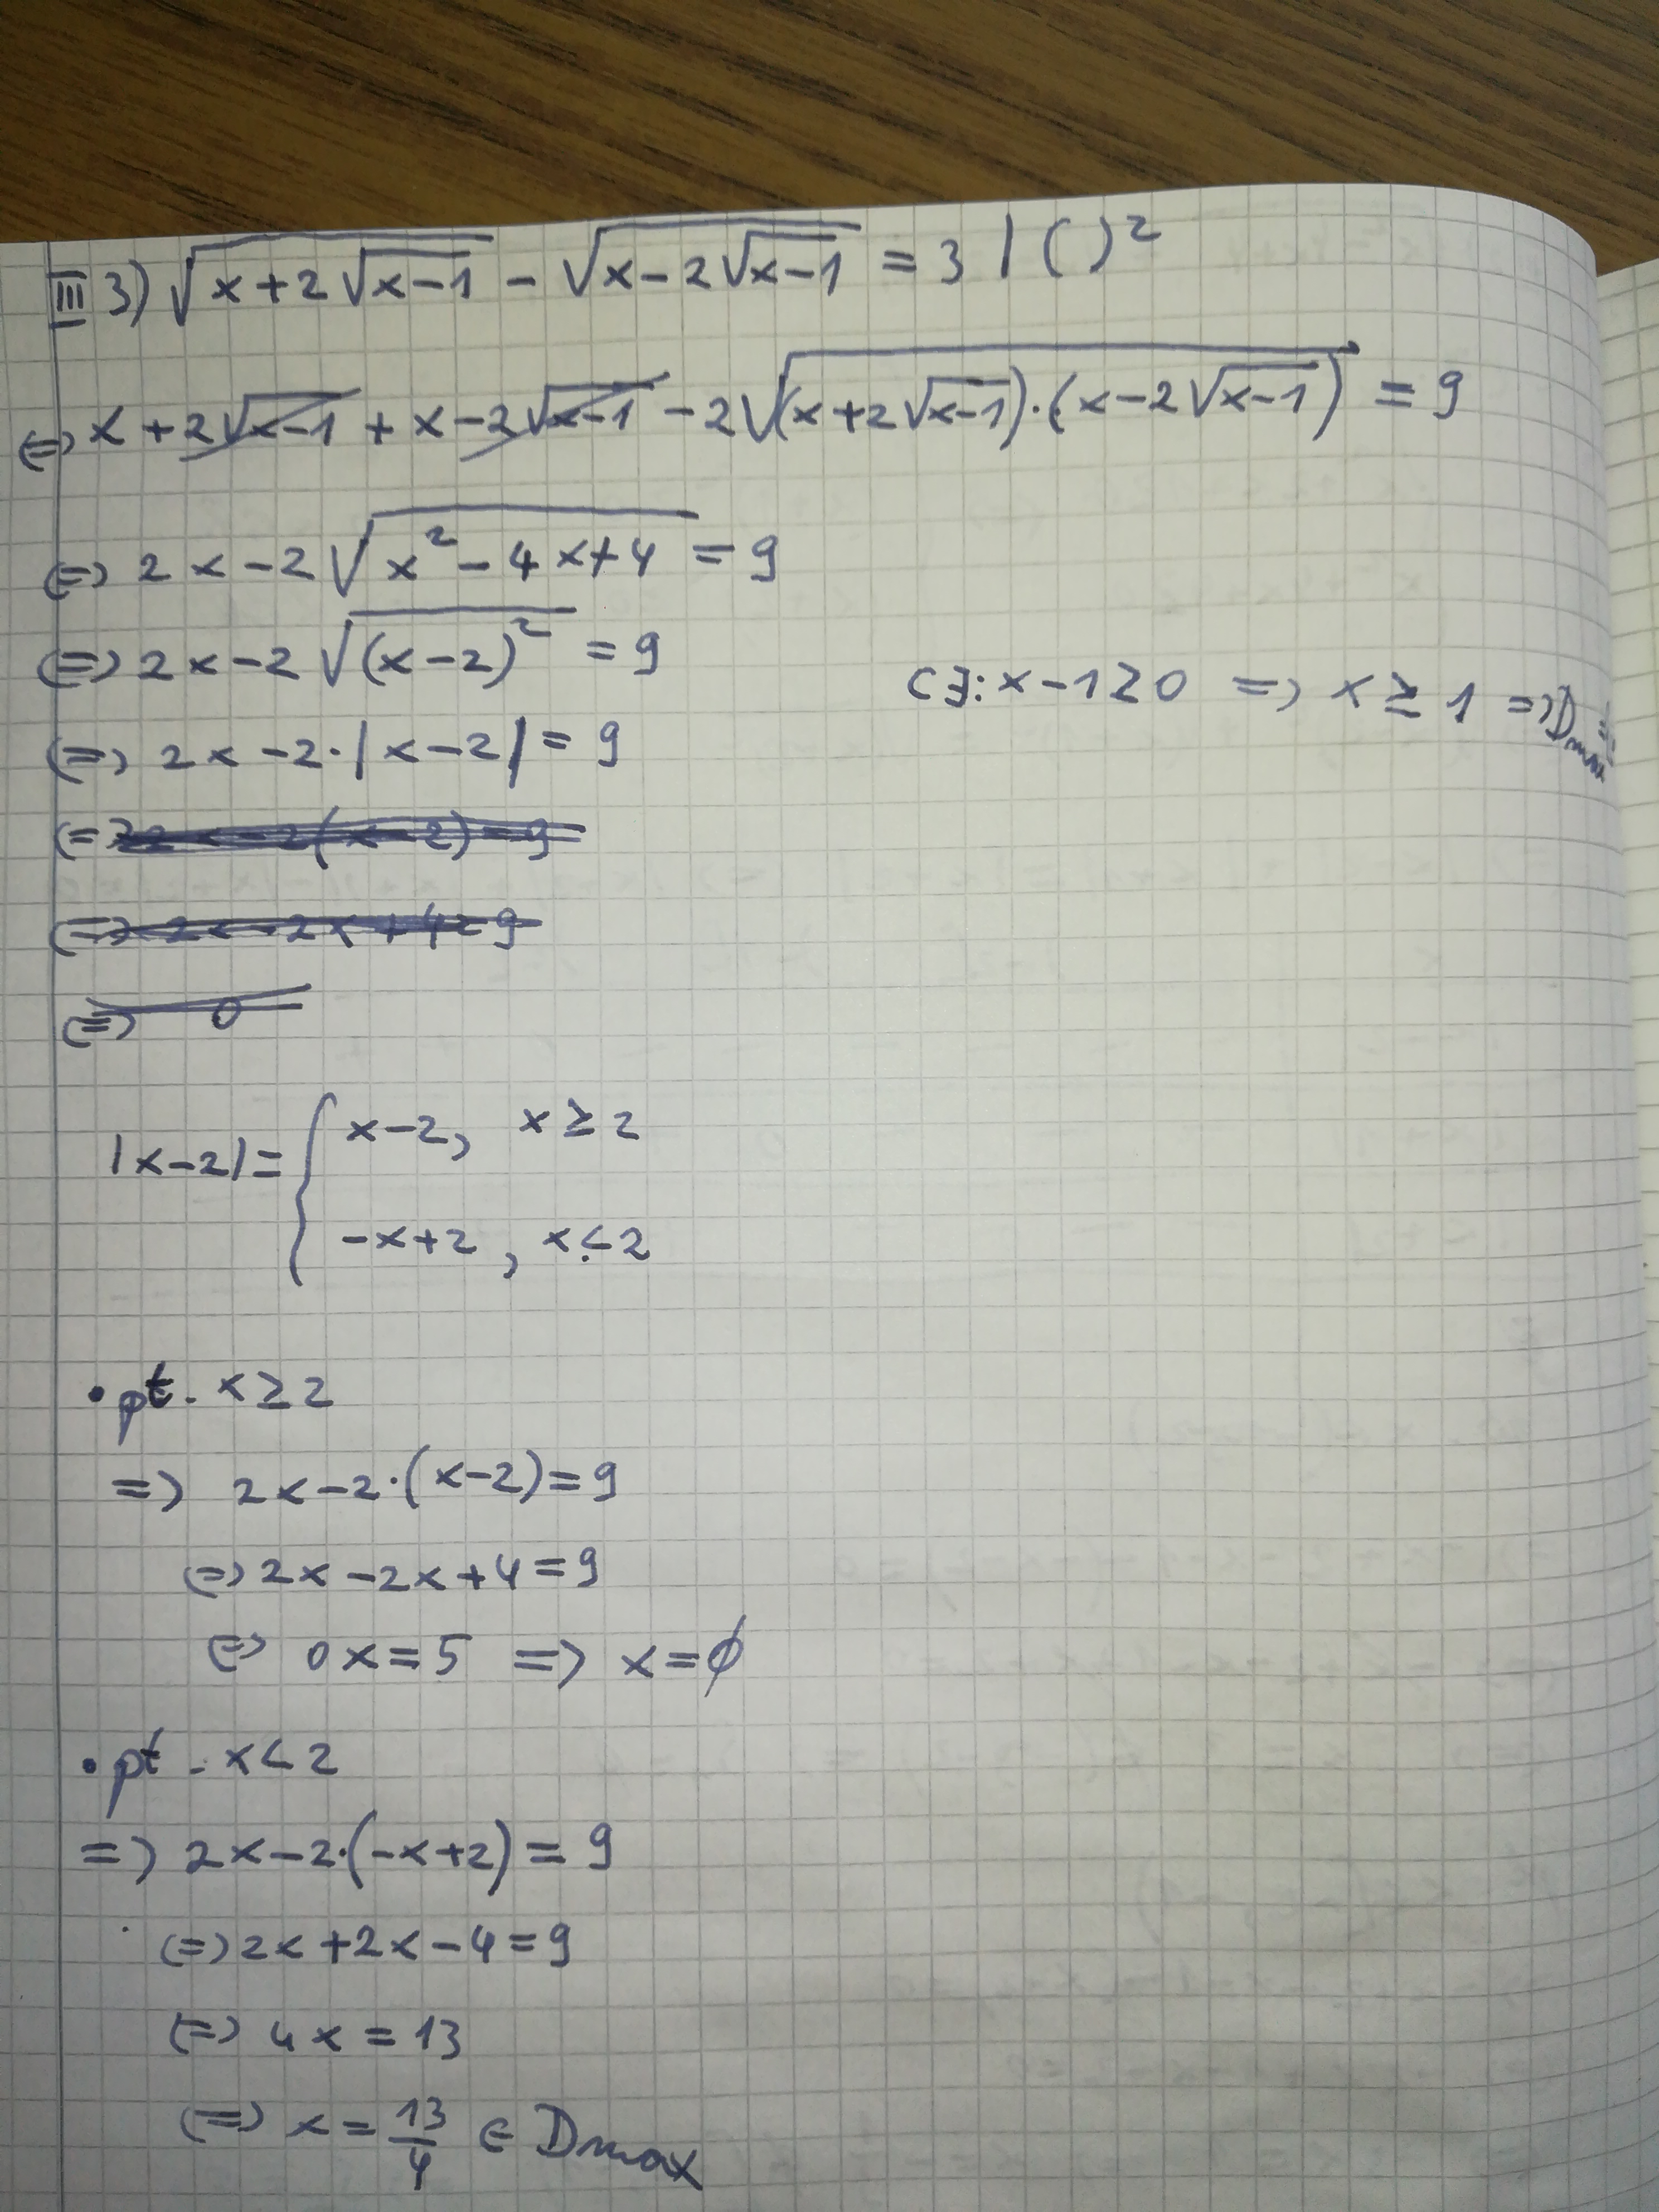 III 3) √(x+2√(x-1)) - √(x-2√(x-1)) = 3 | ( )²
⇔ x+2√(x-1) + x-2√(x-1) - 2√((x+2√(x-1))·(x-2√(x-1))) = 9
⇔ 2x-2√(x²-4x+4) = 9
⇔ 2x-2√((x-2)²) = 9
CE: x-1≥0 ⇒ x≥1 ⇒ Dmax =
⇔ 2x-2·|x-2| = 9
⇔ 2x-2(x-2)=9
⇔ 2x-2x+4=9
⇔ 0
|x-2| = { x-2, x≥2
-x+2, x<2
• pt. x≥2
⇒ 2x-2·(x-2)=9
⇔ 2x-2x+4=9
⇔ 0x=5 ⇒ x=∅
• pt. x<2
⇒ 2x-2·(-x+2)=9
⇔ 2x+2x-4=9
⇔ 4x=13
⇔ x=13/4 ∈ Dmax